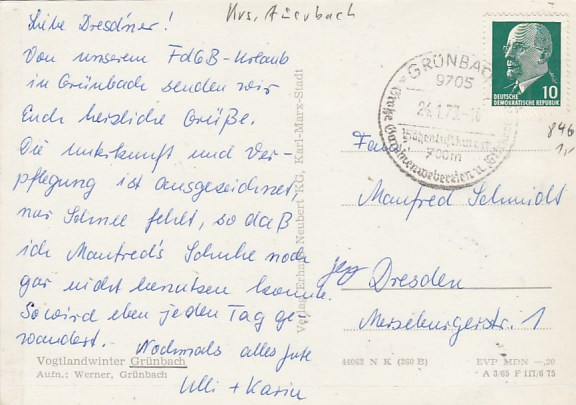 Krs. Auerbach
Liebe Dresdner!
Von unserem FdGB-Urlaub
in Grünbach senden wir
Euch herzliche Grüße.
Die Unterkunft und Ver-
pflegung ist ausgezeichnet,
nur Schnee fehlt, so daß
ich Manfred's Schuhe noch
gar nicht benutzen konnte.
So wird eben jeden Tag ge
wandert. Nochmals alles Gute
Ulli + Karin
Vogtlandwinter Grünbach
Aufn.: Werner, Grünbach
Verlag Erhard Neubert KG, Karl-Marx-Stadt
GRÜNBACH
9705
Höhenluftkurort
700m
10
DEUTSCHE
DEMOKRATISCHE REPUBLIK
846
1,-
Fam
Manfred Schmidt
Dresden
Merseburgerstr. 1
44062 N K (260 B)
EVP MDN —,20
A 3/65 F 111/6 75